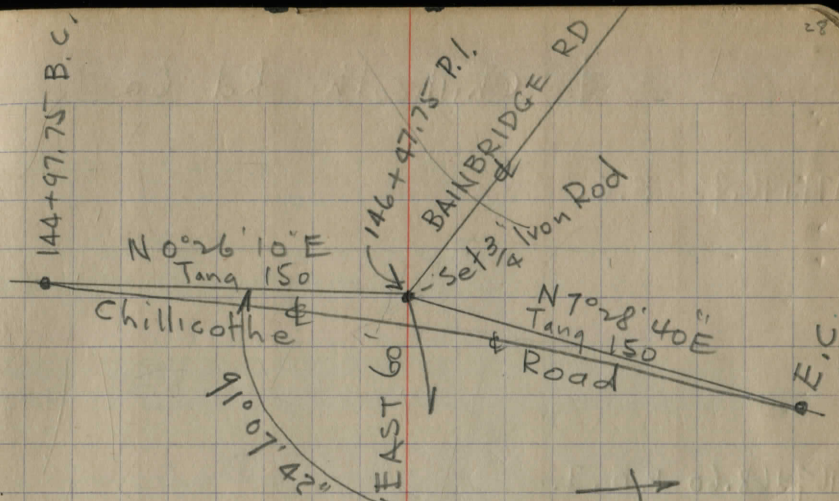 28
144+97.75 B.C.
146+47.75 P.I.
BAINBRIDGE RD
Set 3/4" Iron Rod
N 0° 26' 10" E
Tang 150
Chillicothe
N 7° 28' 40" E
Tang 150
Road
E.C.
EAST 60'
91° 07' 42"